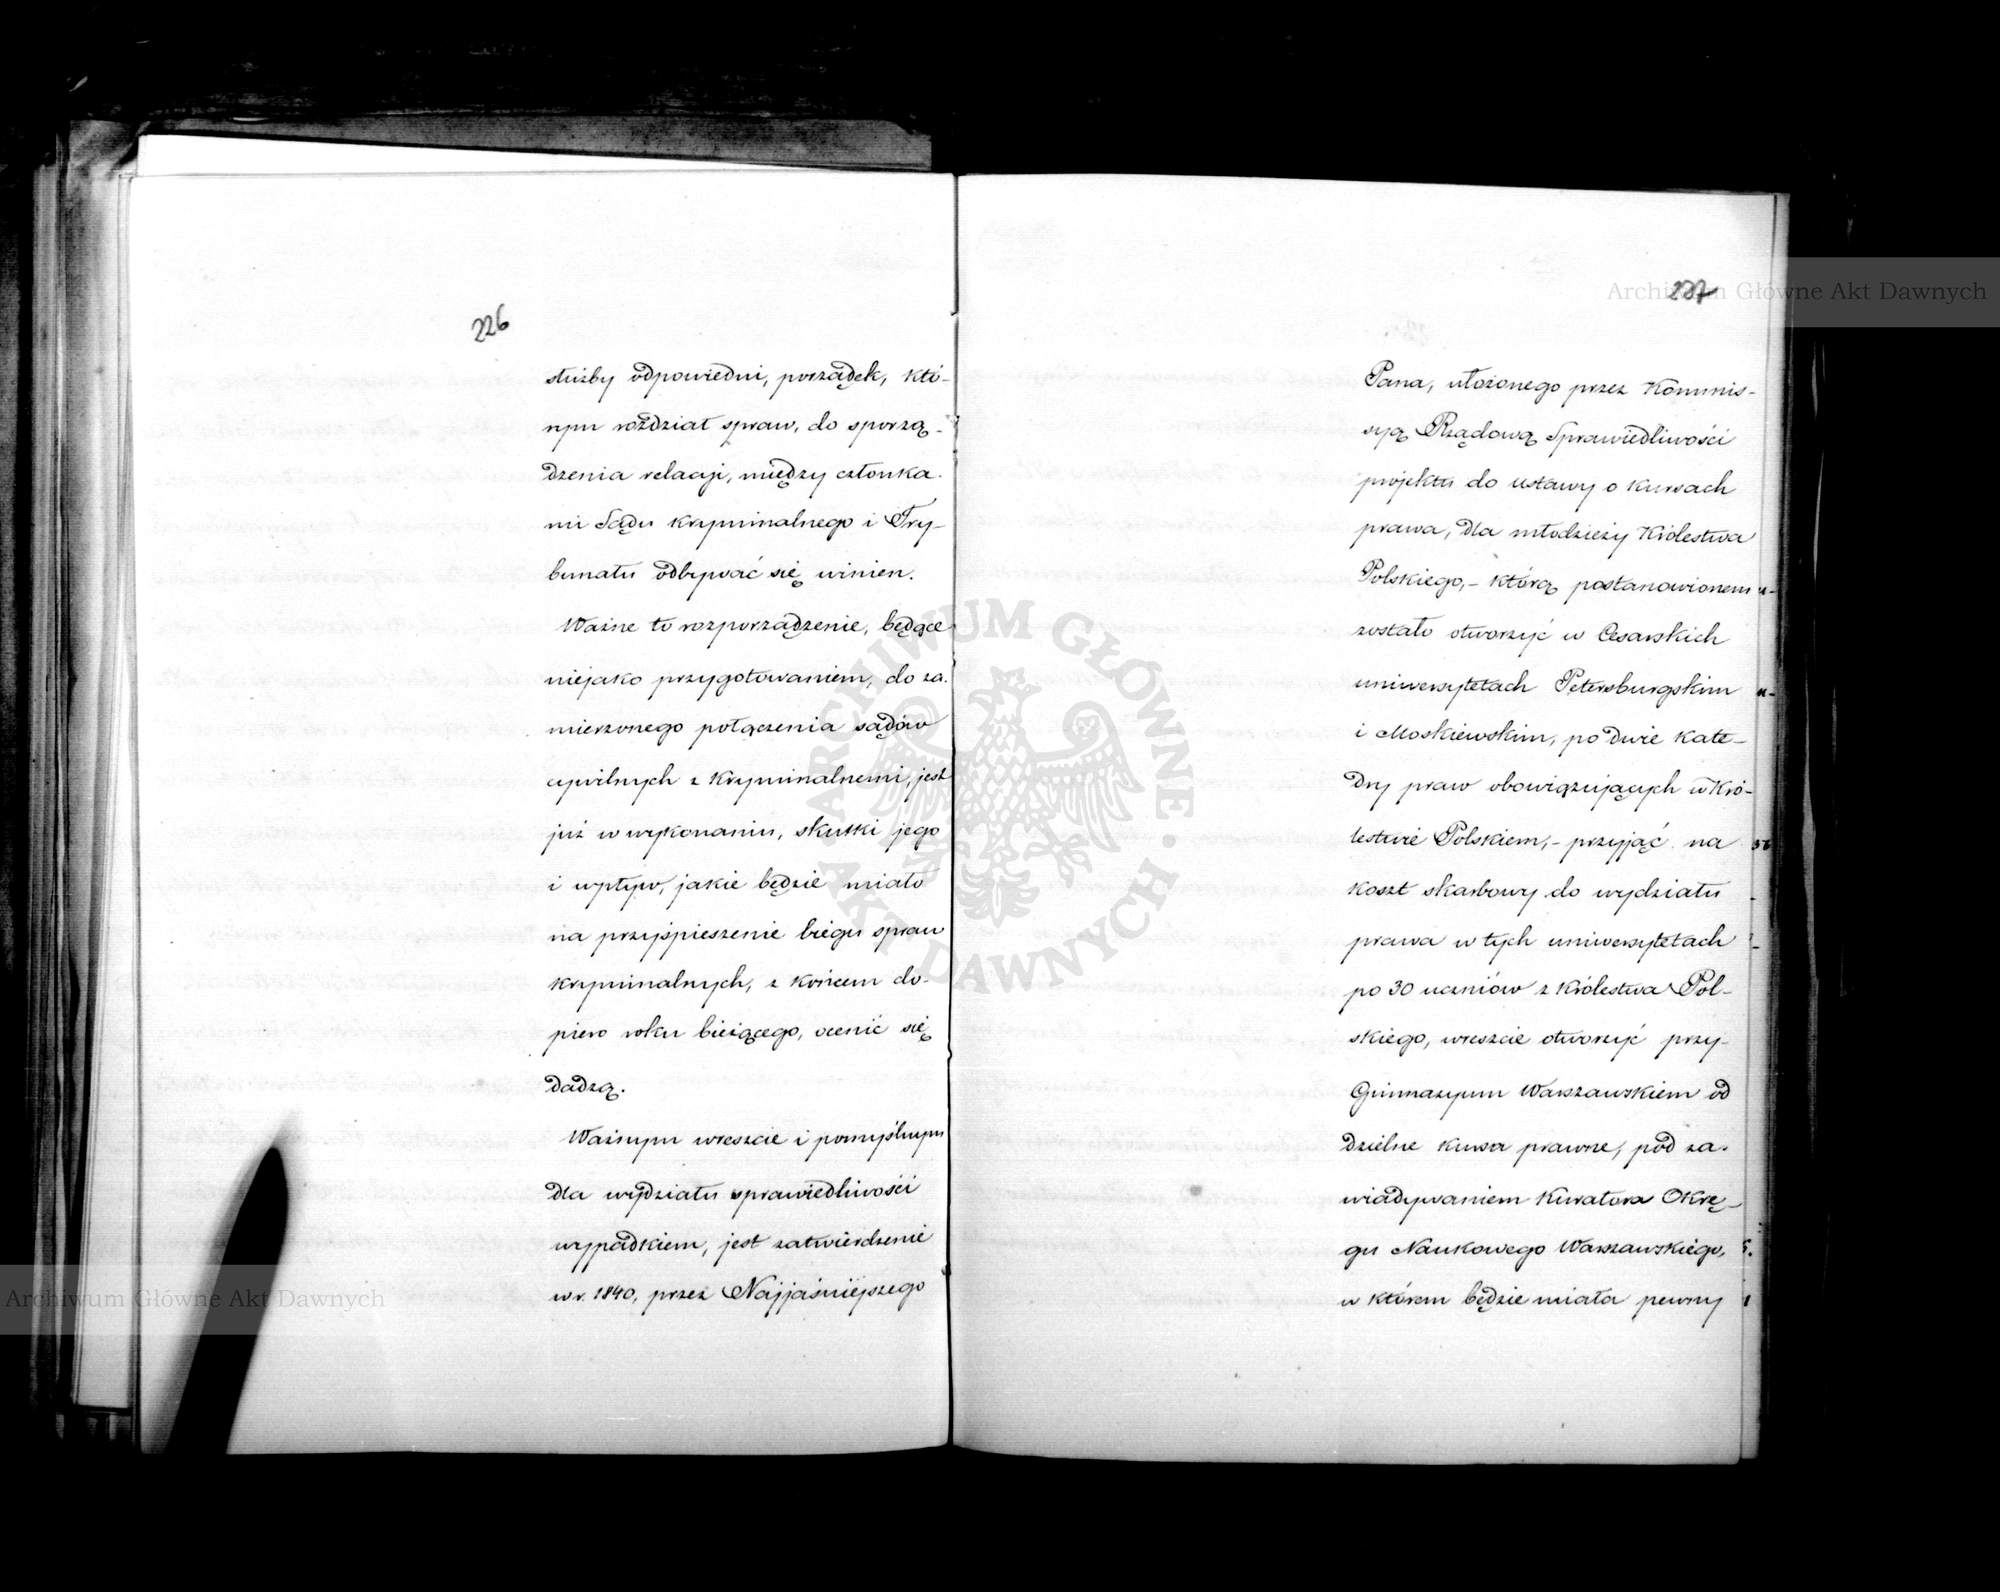 226
służby odpowiedni, porządek, któ-
rym rozdział spraw, do sporzą-
dzenia relacji, między członka-
mi Sądu kryminalnego i Try-
bunału odbywać się winien.
Ważne to rozporządzenie, będące
niejako przygotowaniem, do za-
mierzonego połączenia sądów
cywilnych z kryminalnemi, jest
już w wykonaniu, skutki jego
i wpływ, jakie będzie miało
na przyśpieszenie biegu spraw
kryminalnych, z końcem do-
piero roku bieżącego, ocenić się
dadzą.
Ważnym wreszcie i pomyślnym
dla wydziału sprawiedliwości
wypadkiem, jest zatwierdzenie
w r. 1840, przez Najjaśniejszego
227
Pana, ułożonego przez Kommis-
syą Rządową Sprawiedliwości
projektu do ustawy o kursach
prawa, dla młodzieży Królestwa
Polskiego, - którą postanowionem
zostało otworzyć w Cesarskich
uniwersytetach Petersburgskim
i Moskiewskim, po dwie kate-
dry praw obowiązujących w Kró-
lestwie Polskiem, - przyjąć na
koszt skarbowy do wydziału
prawa w tych uniwersytetach
po 30 uczniów z Królestwa Pol-
skiego, wreszcie otworzyć przy
Gimnazyum Warszawskiem od
dzielne kursa prawne, pod za-
wiadywaniem Kuratora Okrę-
gu Naukowego Warszawskiego,
w którem będzie miała pewny
Archiwum Główne Akt Dawnych
ARCHIWUM GŁÓWNE AKT DAWNYCH
Archiwum Główne Akt Dawnych